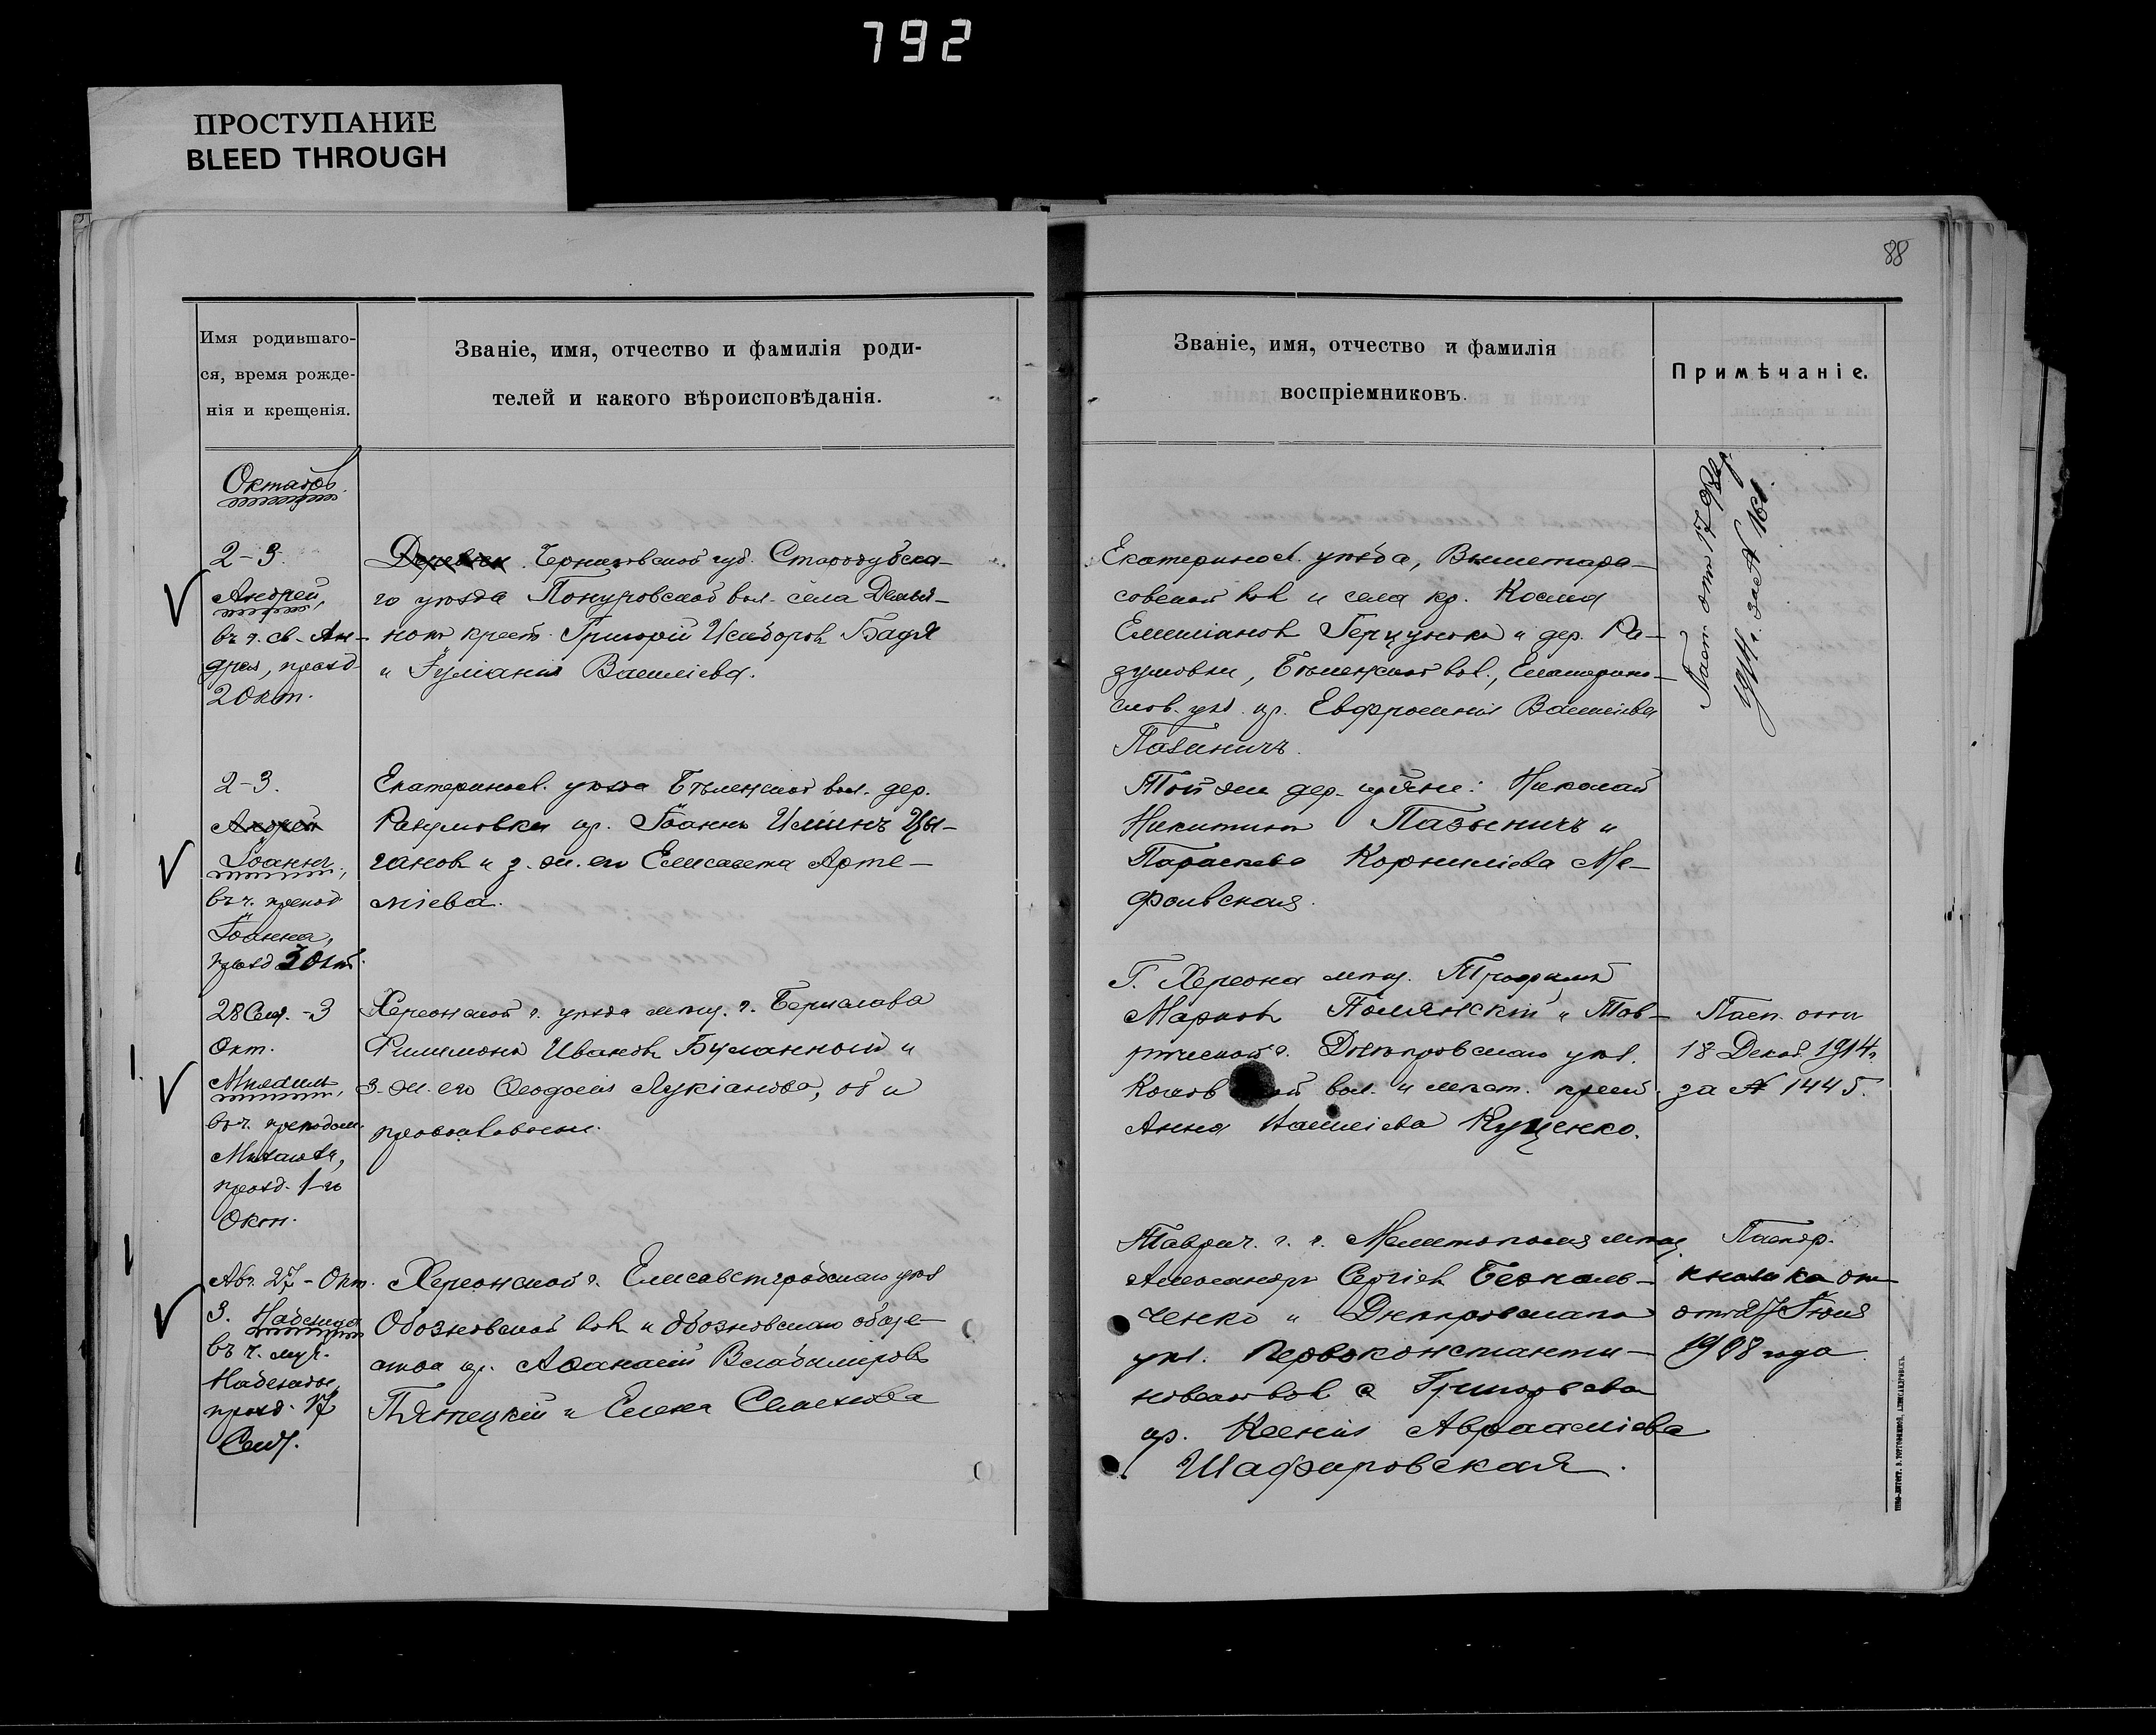 792
ПРОСТУПАНИЕ
BLEED THROUGH
88
Имя родившаго-
ся, время рожде-
нія и крещенія.
Званіе, имя, отчество и фамилія роди-
телей и какого вѣроисповѣданія.
Званіе, имя, отчество и фамилія
воспріемниковъ.
Примѣчаніе.
Октябрь
2-3.
Андрей,
въ ч. св. Ан-
дрея, празд.
2 Окт.
Черниговской губ. Стародубска-
го уѣзда Понуровской вол. села Демья-
нокъ крест. Григорій Исидоровъ Бадя
и Іуліанія Василіева.
Екатеринос. уѣзда, Вышетара-
совской вол и села кр. Косма
Емиліановъ Герцунько и дер. Ра-
зумовки, Бѣленьской вол., Екатерино-
слов. уѣз. кр. Евфросинія Василіева
Пазыничъ.
Пасп. отъ 17
1914 г. за №
2-3.
Андрей
Іоаннъ,
въ ч. препод
Іоанна,
празд 3 Окт.
Екатеринос. уѣзда Бѣленьской вол. дер.
Разумовки кр. Іоаннъ Илiинъ Цы-
гановъ и з. ж. его Елисавета Арте-
міева.
Той же дер. крѣне: Николай
Никитинъ Пазыничъ и
Параскева Корниліева Ме-
фовская.
28 Сент. - 3
Окт.
Михаилъ,
въ ч. преподоб.
Михаила,
празд. 1-го
Окт.
Херсонской г. уѣзда мѣщ. г. Берислава
Филимонъ Ивановъ Буланный и
з. ж. его Ѳеодосія Лукіанова, оба
православные.
Г. Херсона мѣщ. Трофимъ
Марковъ Полянскій и Тав-
рической г. Днѣпровскаго уѣз.
вол. и мѣст. крест.
Анна Василіева Куценко.
Пасп. отъ
18 Декаб. 1914 г.
за № 1445.
Авг. 27 - Окт.
3. Надежда
въ ч. муч.
Надежды,
празд. 17
Сент.
Херсонской г. Елисаветградскаго уѣз
Обозновской вол и Обозновскаго обще-
ства кр. Аѳанасій Владиміровъ
Пятецкій и Елена Семенова
Таврич. г. г. Мелитополя мѣщ.
Александръ Сергіевъ Безпаль-
ченко и Днѣпровскаго
уѣз. Первоконстанти-
новской вол с Григорьевки
кр. Ксенія Авраамiева
Шафировская.
Паспор.
книжка
отъ 27 Іюня
1908 года